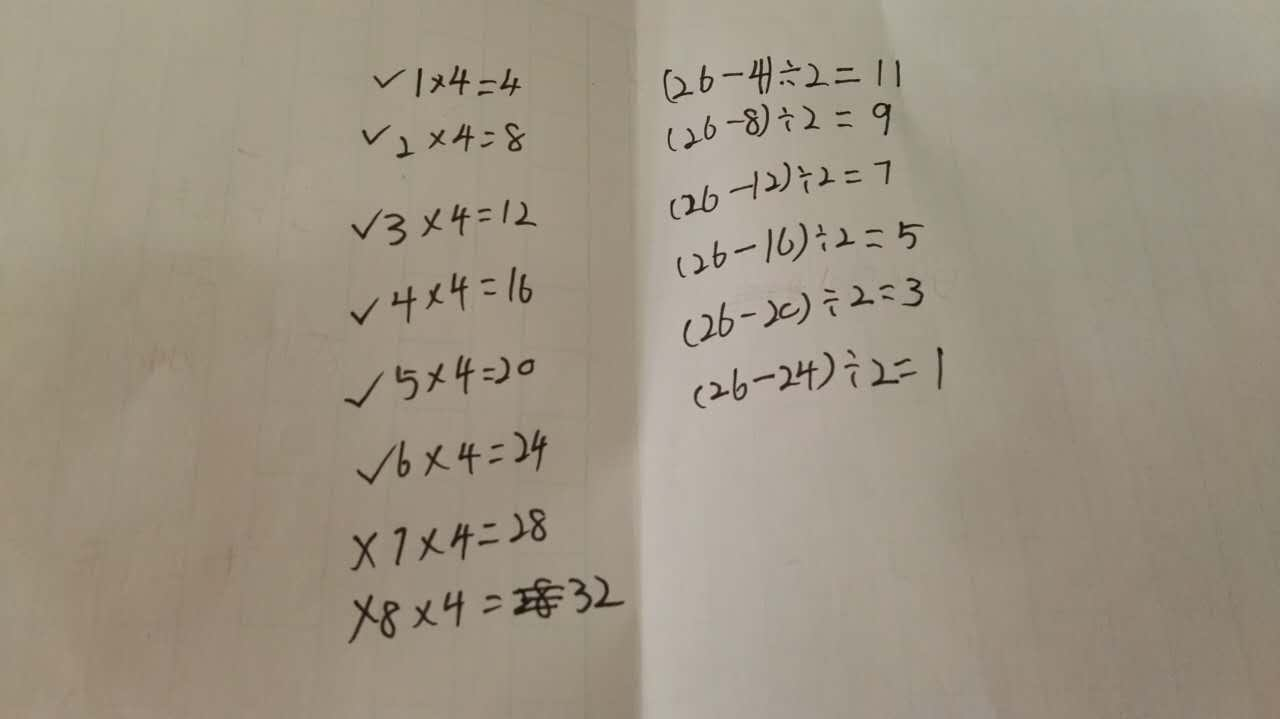 ✓1×4=4
✓2×4=8
✓3×4=12
✓4×4=16
✓5×4=20
✓6×4=24
×7×4=28
×8×4=32
(26-4)÷2=11
(26-8)÷2=9
(26-12)÷2=7
(26-16)÷2=5
(26-20)÷2=3
(26-24)÷2=1